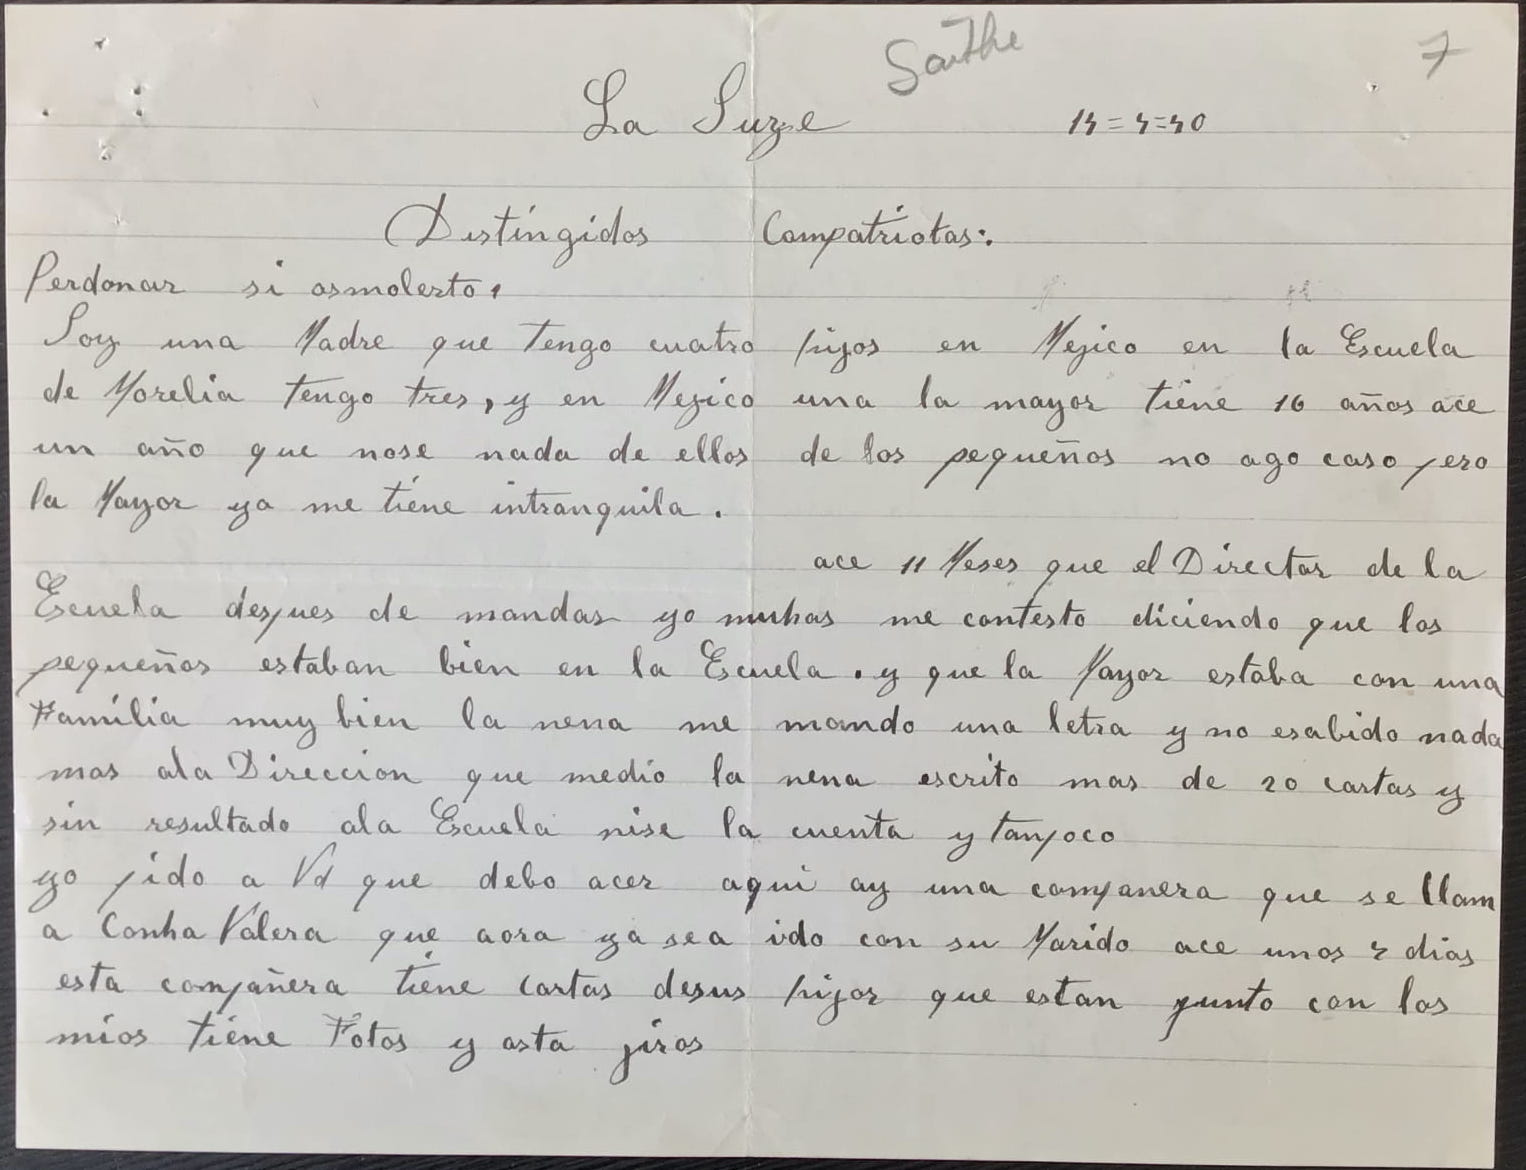 Sarthe 7
La Suze 14=4=40
Distingidos Compatriotas:.
Perdonar si osmolesto,
Soy una Madre que tengo cuatro hijos en Mejico en la Escuela
de Morelia tengo tres, y en Mejico una la mayor tiene 16 años ace
un año que nose nada de ellos de los pequeños no ago caso pero
la Mayor ya me tiene intranquila.
ace 11 Meses que el Director de la
Escuela despues de mandar yo muhas me contesto diciendo que los
pequeños estaban bien en la Escuela. y que la Mayor estaba con una
Familia muy bien la nena me mando una letra y no esabido nada
mas ala Direccion que medio la nena escrito mas de 20 cartas y
sin resultado ala Escuela nise la cuenta y tampoco
yo pido a Vd que debo acer aqui ay una companera que se llam
a Conha Valera que aora ya sea ido con su Marido ace unos dias
esta compañera tiene cartas desus hijos que estan junto con los
mios tiene Fotos y asta jiros